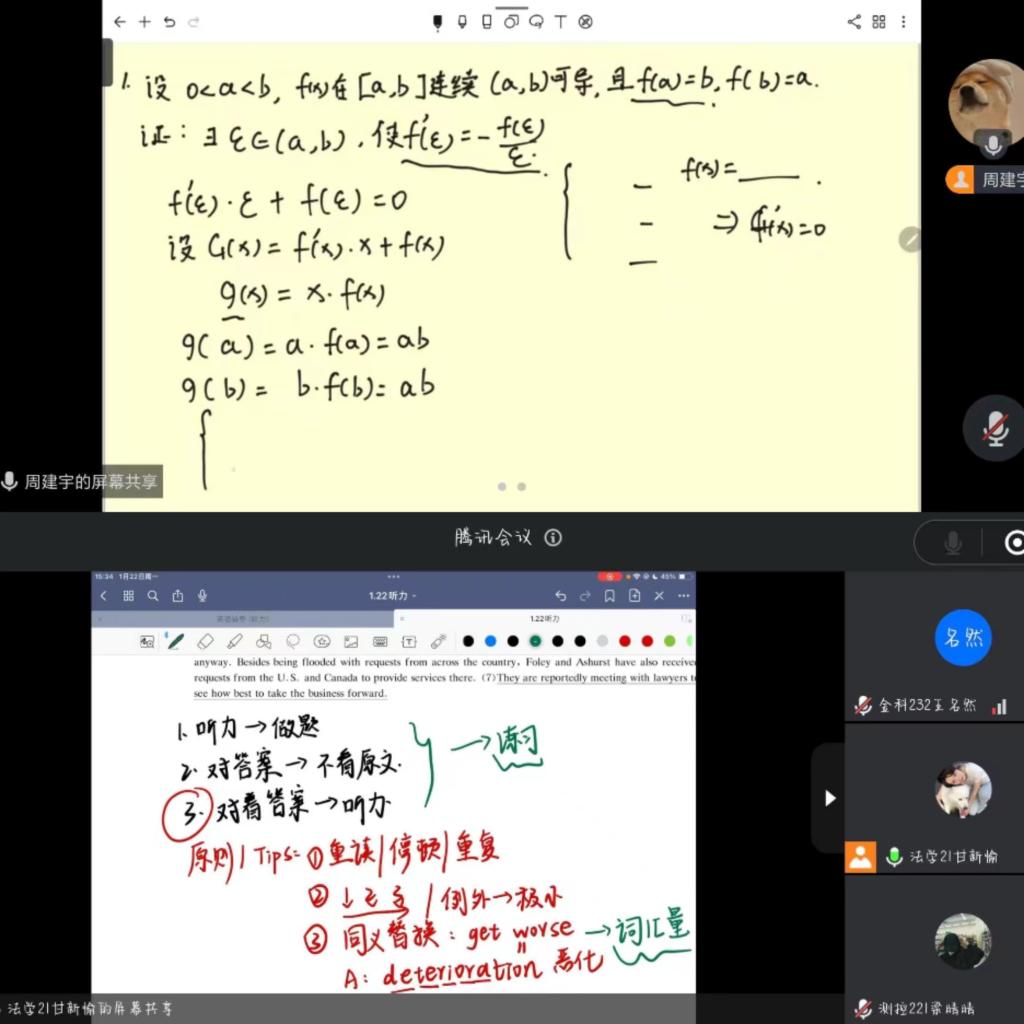 1. 设 0<a<b, f(x)在[a,b]连续 (a,b)可导, 且f(a)=b, f(b)=a.
证: ∃ ξ∈(a,b), 使f'(ξ)=-f(ξ)/ξ.
f'(ξ)·ξ + f(ξ)=0
f(x)=
设 G(x)= f'(x)·x+f(x)
⇒ f'(x)=0
g(x) = x·f(x)
g(a)=a·f(a)=ab
g(b)= b·f(b)=ab
周建宇
周建宇的屏幕共享
腾讯会议
15:34 1月22日周一
45%
1.22听力
1.22听力
anyway. Besides being flooded with requests from across the country, Foley and Ashurst have also receive
requests from the U.S. and Canada to provide services there. (7)They are reportedly meeting with lawyers t
see how best to take the business forward.
1. 听力→做题
2. 对答案→不看原文.
→
3. 对着答案→听力
原则/Tips: ①重读/停顿/重复
② / 例外→极小
③ 同义替换: get worse →词汇量
A: deterioration 恶化
名然
金科232王名然
法学21甘新愉
测控221梁晴晴
法学21甘新愉的屏幕共享